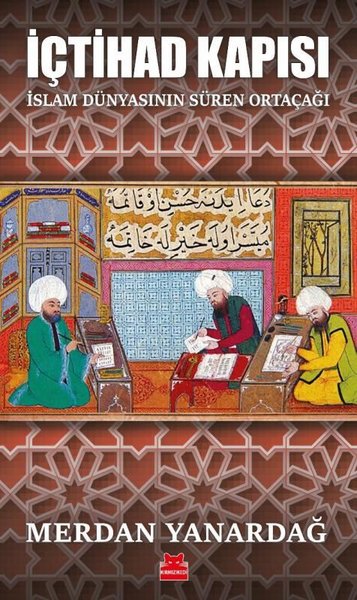 İÇTİHAD KAPISI
İSLAM DÜNYASININ SÜREN ORTAÇAĞI
دعا ایدنه حسن اوقاتمه
میسر اوله خیر له خاتمه
MERDAN YANARDAĞ
KIRMIZIKEDİ